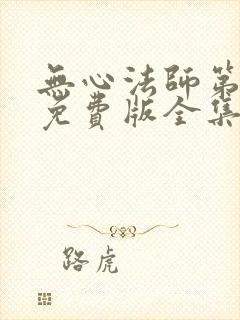 無心法師第
免費版全集
路虎